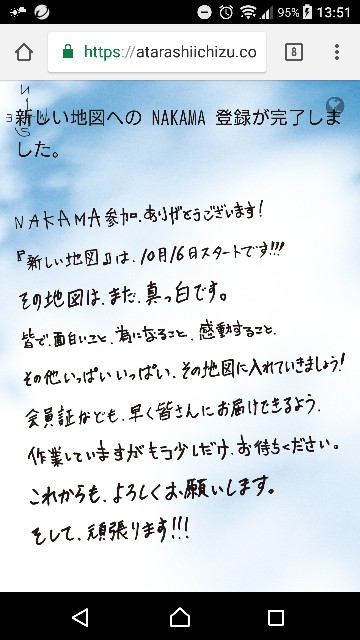 95% 13:51
https://atarashiichizu.co
8
新しい地図への NAKAMA 登録が完了しま
した。
NAKAMA参加、ありがとうございます！
『新しい地図』は、10月16日スタートです!!!
その地図は、まだ、真っ白です。
皆で、面白いこと、為になること、感動すること、
その他いっぱいいっぱい、その地図に入れていきましょう！
会員証なども、早く皆さんにお届けできるよう、
作業していますがもう少しだけ、お待ちください。
これからも、よろしくお願いします。
そして、頑張ります!!!